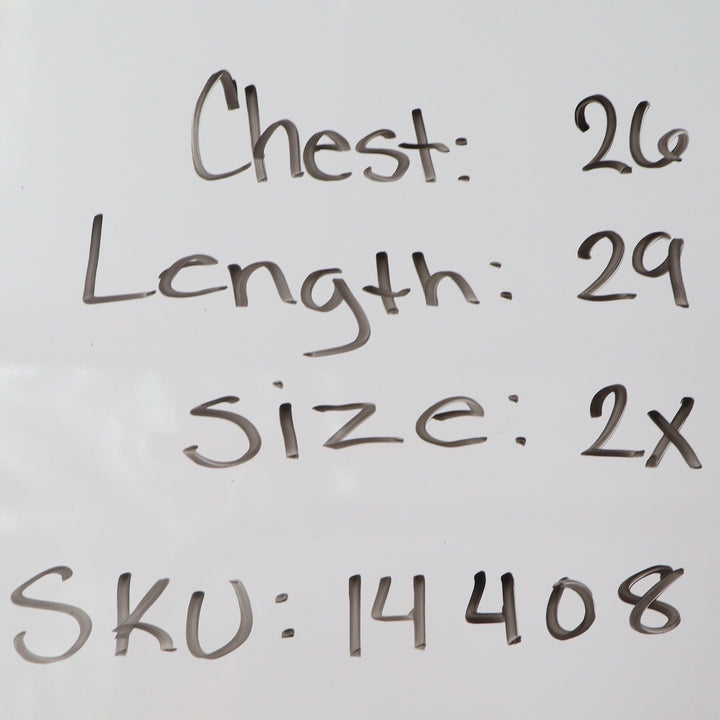 Chest: 26
Length: 29
Size: 2x
SKU: 14408